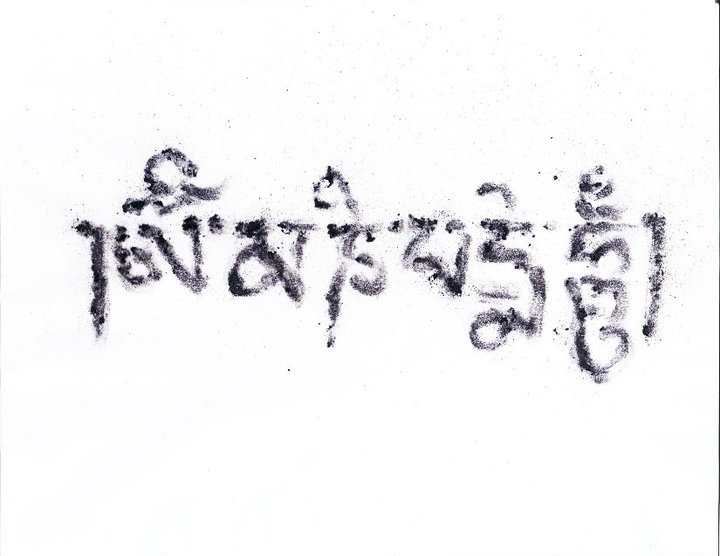 །ༀ་མ་ཎི་པདྨེ་ཧཱུྃ།